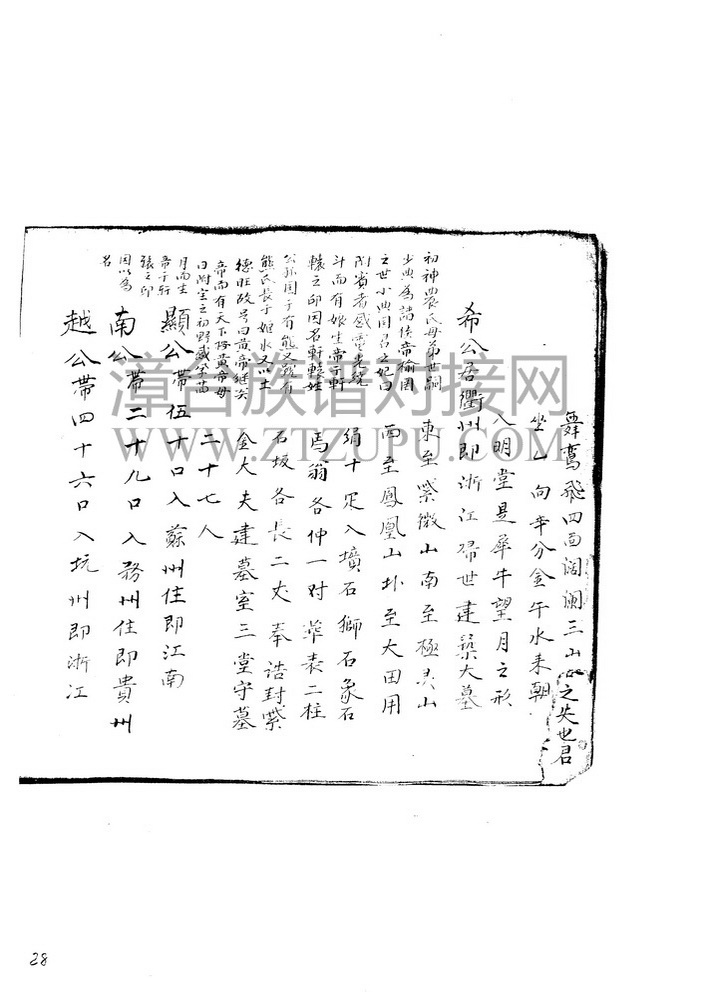 舞鸞飛四面濶澜三山之失也君
坐 向辛分金午水来朝
入明堂是犀牛望月之形
希公居衢州即浙江 世建築大墓
東至紫微山南至極灵山
西至鳳凰山圤至大田用
絹十疋入墳石獅石象石
馬翁各仲一对華表二柱
石坂各長二丈奉誥封紫
金大夫建墓室三堂守墓
二十七人
初神農氏母弟世嗣
少典為諸侯帝榆罔
之世少典国君之妃曰
附寳者感電光繞
斗而有娠生帝于軒
轅之邱因名軒轅姓
公孙国于有熊又號有
熊氏長于姬水又以土
德旺故号曰黄帝継炎
帝而有天下 黄帝母
曰附宝之初野感
月而生
帝于軒
轅之邱
因以為
名
顯公帶伍十口入蘇州住即江南
南公帶二十九口入務州住即貴州
越公帶四十六口入坑州即浙江
漳台族谱对接网
WWW.ZTZUPU.COM
28